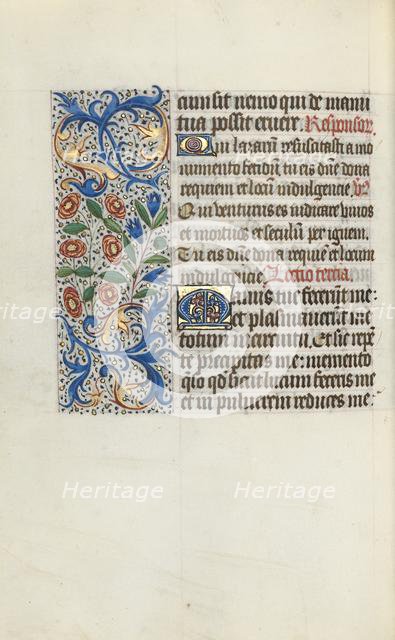 cum sit nemo qui de manu
tua possit eruere Responsor̄
Qui lazarū resuscitasti a mo
numento fetidū tu eis dn̄e dona
requiem et locū indulgencie v̄
Qui venturus es iudicare viuos
et mortuos et seculū per ignem
Tu eis dn̄e dona requiē et locum
indulgēcie Lectio tercia
Manus tue fecerūt me:
et plasmauerūt me
totum in circuitu: Et sic repē
te precipitas me: memento
q̄so qd̄ sicut lutum feceris me
et in puluerem reduces me:
Heritage
Heritage
Heritage
Heritage